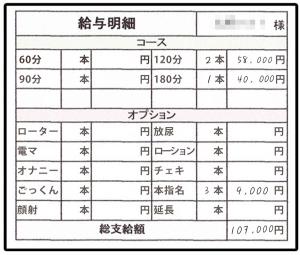 給与明細 様
コース
60分 本 円 120分 2本 58.000円
90分 本 円 180分 1本 40.000円
オプション
ローター 本 円 放尿 本 円
電マ 本 円 ローション 本 円
オナニー 本 円 チェキ 本 円
ごっくん 本 円 本指名 3本 9.000円
顔射 本 円 延長 本 円
総支給額 107.000円